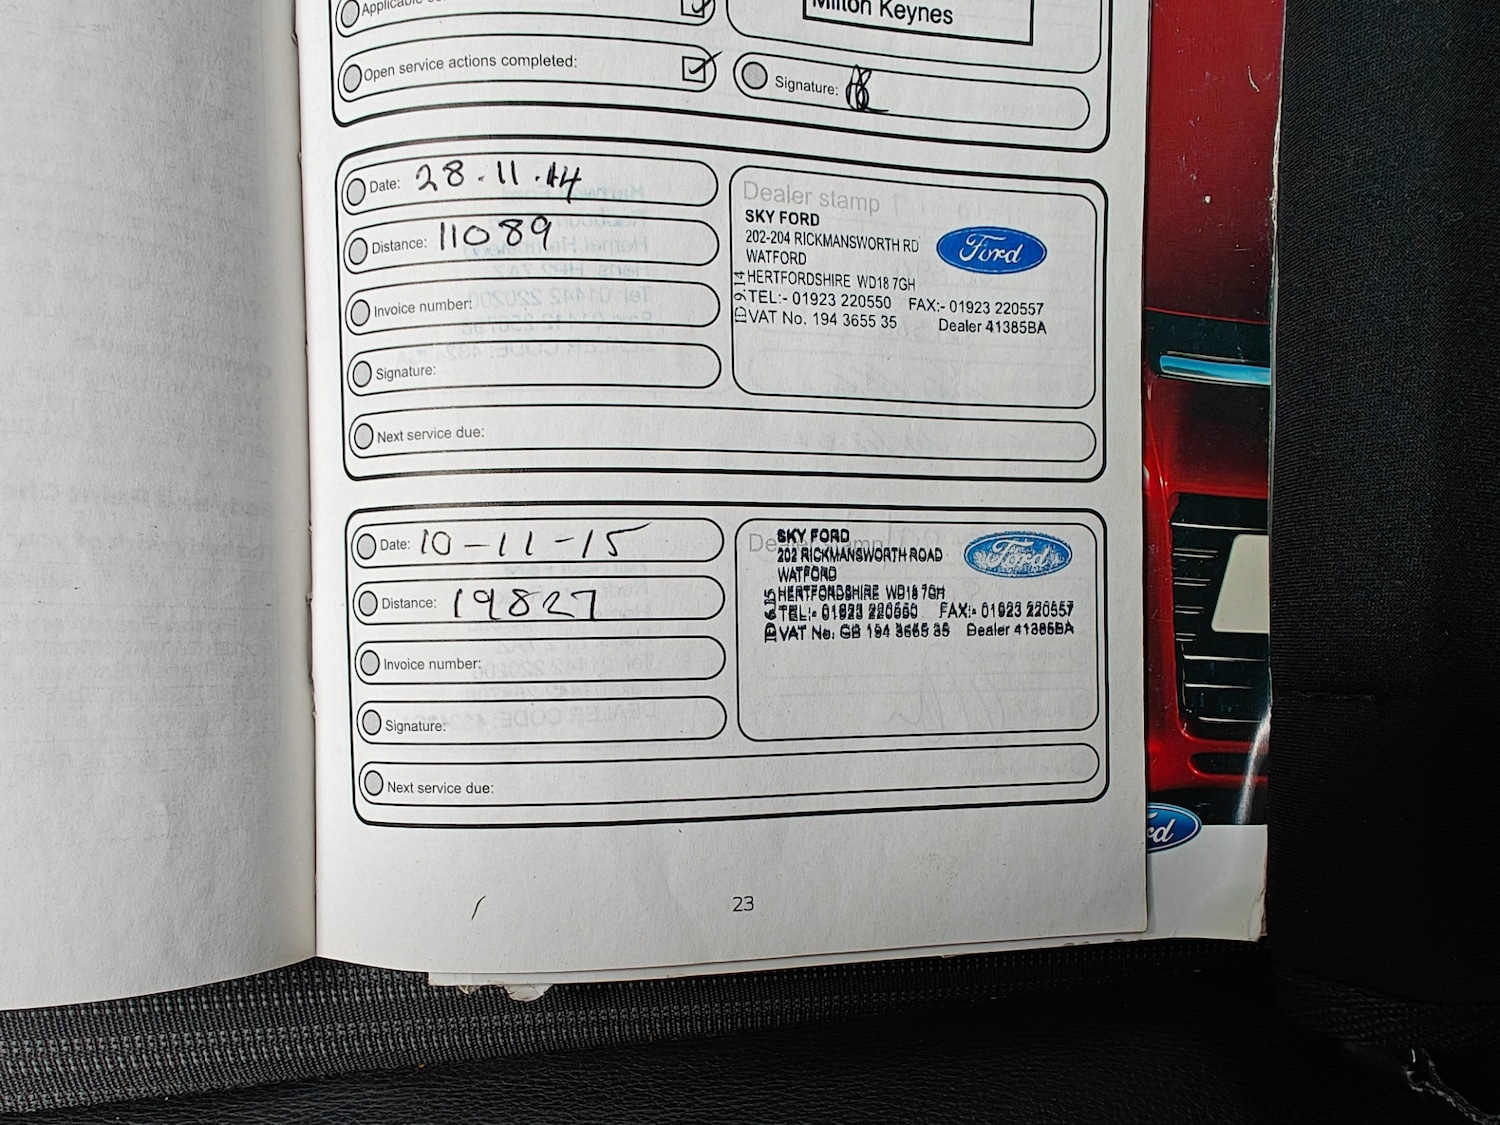 Applicable
Milton Keynes
Open service actions completed:
Signature:
Date: 28.11.14
Distance: 11089
Invoice number:
Signature:
Next service due:
Dealer stamp
SKY FORD
202-204 RICKMANSWORTH RD
WATFORD
HERTFORDSHIRE WD18 7GH
TEL:- 01923 220550 FAX:- 01923 220557
VAT No. 194 3655 35 Dealer 41385BA
ID 9.14
Ford
Date: 10-11-15
Distance: 19827
Invoice number:
Signature:
Next service due:
Dealer stamp
SKY FORD
202 RICKMANSWORTH ROAD
WATFORD
HERTFORDSHIRE WD18 7GH
TEL:- 01923 220550 FAX:- 01923 220557
VAT No: GB 194 3655 35 Dealer 41385BA
ID 6.15
Ford
23